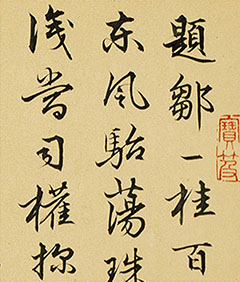 寶笈
題鄒一桂百
東風駘蕩珠
淺司權